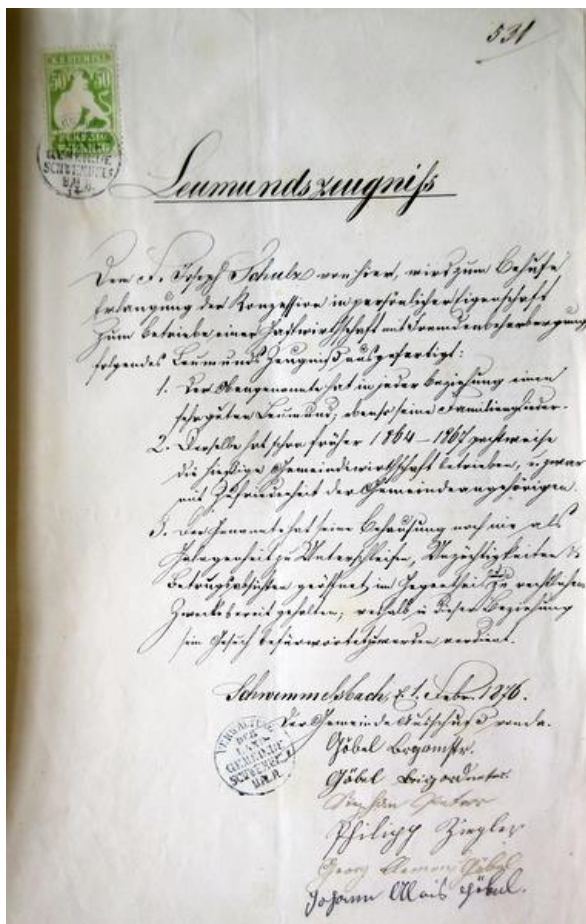 531
50 50
GEMEINDE
Leumundszeugniß
Dem F. Joseph Schulz von hier, wird zum Behufe
Erlangung der Konzession in persönlicher Eigenschaft
zum Betriebe einer Gastwirthschaft mit Fremdenbeherbergung,
folgendes Leumunds Zeugniß ausgefertigt:
1. Der Obengenannte hat in jeder Beziehung einen
sehr guten Leumund, ebenso seine Familienglieder.
2. Derselbe hat schon früher 1864–1867 pachtweise
die hiesige Gemeindewirthschaft betrieben, u. zwar
mit Zufriedenheit der Gemeindeangehörigen.
3. Der Genannte hat seine Behausung noch nie als
Gelegenheit zu Unterschleifen, Unzüchtigkeiten
geöffnet, im Gegentheil zu rechtlichem
Zwecke bereit gehalten, weßhalb in dieser Beziehung
sein Gesuch befürwortet zu werden verdient.
Schwemmelsbach, 1. Febr. 1876.
Der Gemeinde Ausschuß
VERWALTUNG
DER
LAND
GEMEINDE
Göbel Brgmstr.
Göbel Beigordneter
Philipp Ziegler
Georg Göbel
Johann Alois Göbel.